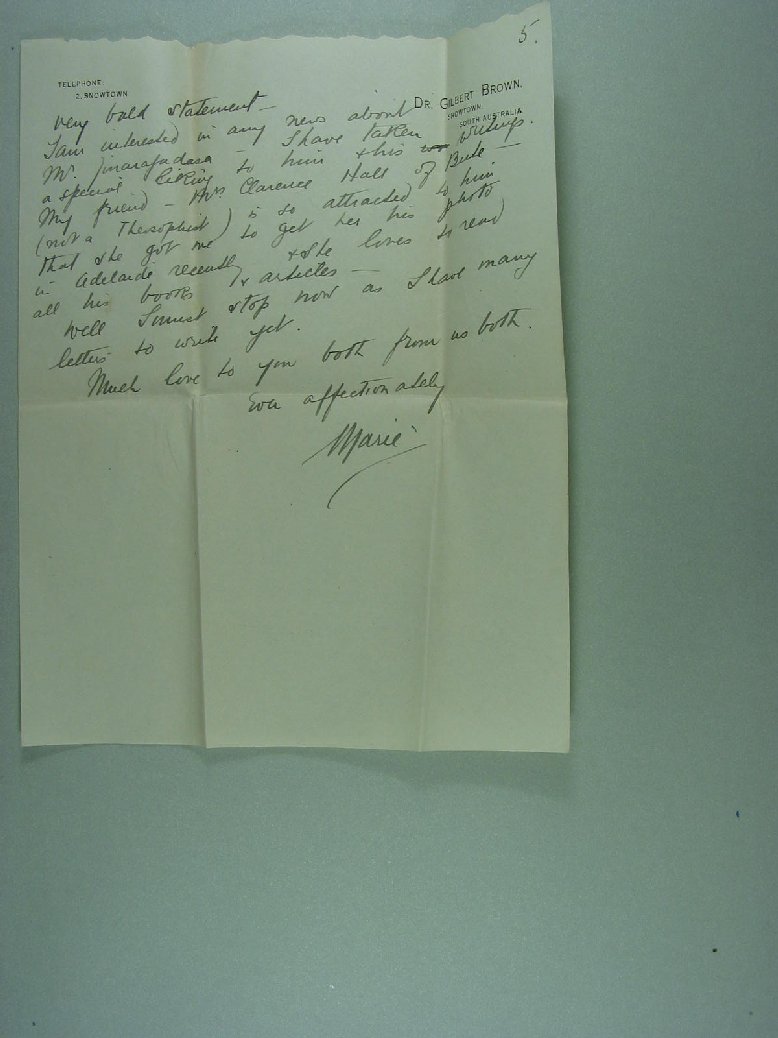 5.
TELEPHONE
2, SNOWTOWN
DR. GILBERT BROWN.
SNOWTOWN
SOUTH AUSTRALIA
very bald statement —
I am interested in any news about
Mr. Jinarajadasa — I have taken
a special liking to him & his writings.
My friend — Mrs Clarence Hall of Bute —
(not a Theosophist) is so attracted to him
that she got me to get her his photo
in Adelaide recently & she loves to read
all his books & articles —
Well I must stop now as I have many
letters to write yet.
Much love to you both from us both.
Ever affectionately
Marie